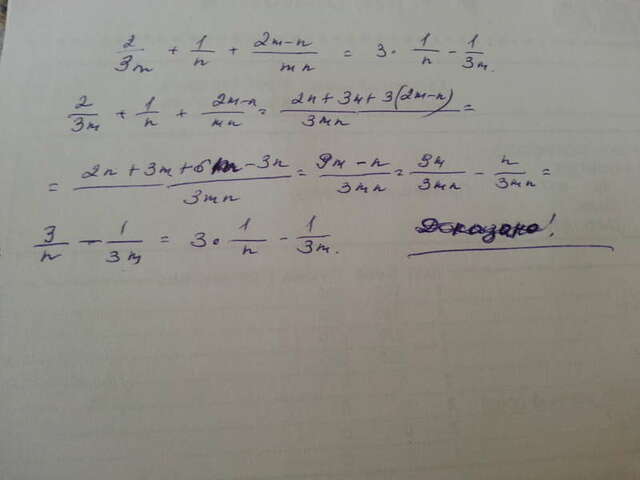 2/3m + 1/n + 2m-n/mn = 3· 1/n - 1/3m.
2/3m + 1/n + 2m-n/mn = 2n+3m+3(2m-n)/3mn =
= 2n+3m+6m-3n/3mn = 9m-n/3mn = 9m/3mn - n/3mn =
3/n - 1/3m = 3· 1/n - 1/3m. Доказано!